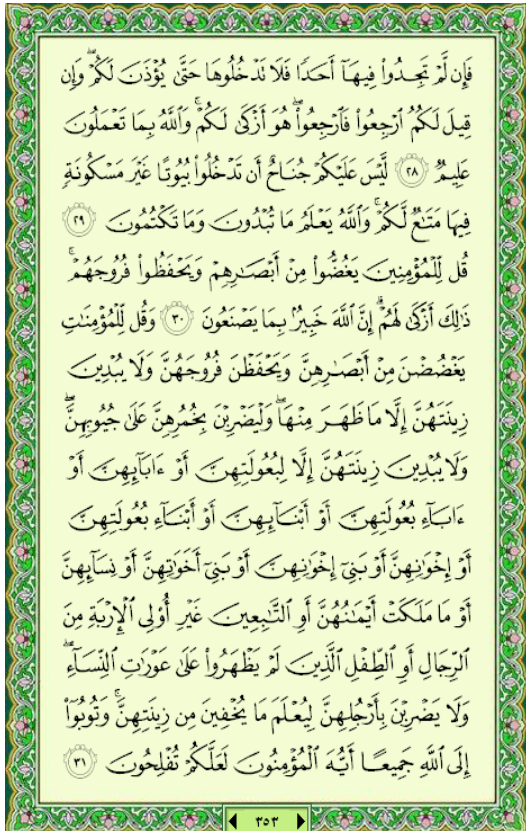 فَإِن لَّمْ تَجِدُوا۟ فِيهَآ أَحَدًا فَلَا تَدْخُلُوهَا حَتَّىٰ يُؤْذَنَ لَكُمْ ۖ وَإِن
قِيلَ لَكُمُ ٱرْجِعُوا۟ فَٱرْجِعُوا۟ ۖ هُوَ أَزْكَىٰ لَكُمْ ۚ وَٱللَّهُ بِمَا تَعْمَلُونَ
عَلِيمٌ ﴿٢٨﴾ لَّيْسَ عَلَيْكُمْ جُنَاحٌ أَن تَدْخُلُوا۟ بُيُوتًا غَيْرَ مَسْكُونَةٍ
فِيهَا مَتَـٰعٌ لَّكُمْ ۚ وَٱللَّهُ يَعْلَمُ مَا تُبْدُونَ وَمَا تَكْتُمُونَ ﴿٢٩﴾
قُل لِّلْمُؤْمِنِينَ يَغُضُّوا۟ مِنْ أَبْصَـٰرِهِمْ وَيَحْفَظُوا۟ فُرُوجَهُمْ ۚ
ذَٰلِكَ أَزْكَىٰ لَهُمْ ۗ إِنَّ ٱللَّهَ خَبِيرٌۢ بِمَا يَصْنَعُونَ ﴿٣٠﴾ وَقُل لِّلْمُؤْمِنَـٰتِ
يَغْضُضْنَ مِنْ أَبْصَـٰرِهِنَّ وَيَحْفَظْنَ فُرُوجَهُنَّ وَلَا يُبْدِينَ
زِينَتَهُنَّ إِلَّا مَا ظَهَرَ مِنْهَا ۖ وَلْيَضْرِبْنَ بِخُمُرِهِنَّ عَلَىٰ جُيُوبِهِنَّ ۖ
وَلَا يُبْدِينَ زِينَتَهُنَّ إِلَّا لِبُعُولَتِهِنَّ أَوْ ءَابَآئِهِنَّ أَوْ
ءَابَآءِ بُعُولَتِهِنَّ أَوْ أَبْنَآئِهِنَّ أَوْ أَبْنَآءِ بُعُولَتِهِنَّ
أَوْ إِخْوَٰنِهِنَّ أَوْ بَنِىٓ إِخْوَٰنِهِنَّ أَوْ بَنِىٓ أَخَوَٰتِهِنَّ أَوْ نِسَآئِهِنَّ
أَوْ مَا مَلَكَتْ أَيْمَـٰنُهُنَّ أَوِ ٱلتَّـٰبِعِينَ غَيْرِ أُو۟لِى ٱلْإِرْبَةِ مِنَ
ٱلرِّجَالِ أَوِ ٱلطِّفْلِ ٱلَّذِينَ لَمْ يَظْهَرُوا۟ عَلَىٰ عَوْرَٰتِ ٱلنِّسَآءِ ۖ
وَلَا يَضْرِبْنَ بِأَرْجُلِهِنَّ لِيُعْلَمَ مَا يُخْفِينَ مِن زِينَتِهِنَّ ۚ وَتُوبُوٓا۟
إِلَى ٱللَّهِ جَمِيعًا أَيُّهَ ٱلْمُؤْمِنُونَ لَعَلَّكُمْ تُفْلِحُونَ ﴿٣١﴾
٣٥٣